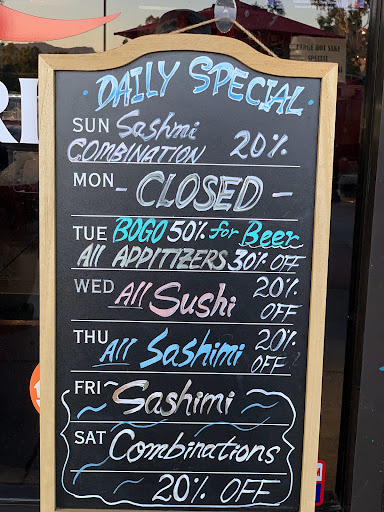 LARGE HOT SAKE
DAILY SPECIAL
SUN Sashmi
COMBINATION 20%
MON - CLOSED -
TUE BOGO 50% for Beer
All APPITIZERS 30% OFF
WED All Sushi 20% OFF
THU All Sashimi 20% OFF
FRI ~ Sashimi
SAT Combinations
20% OFF